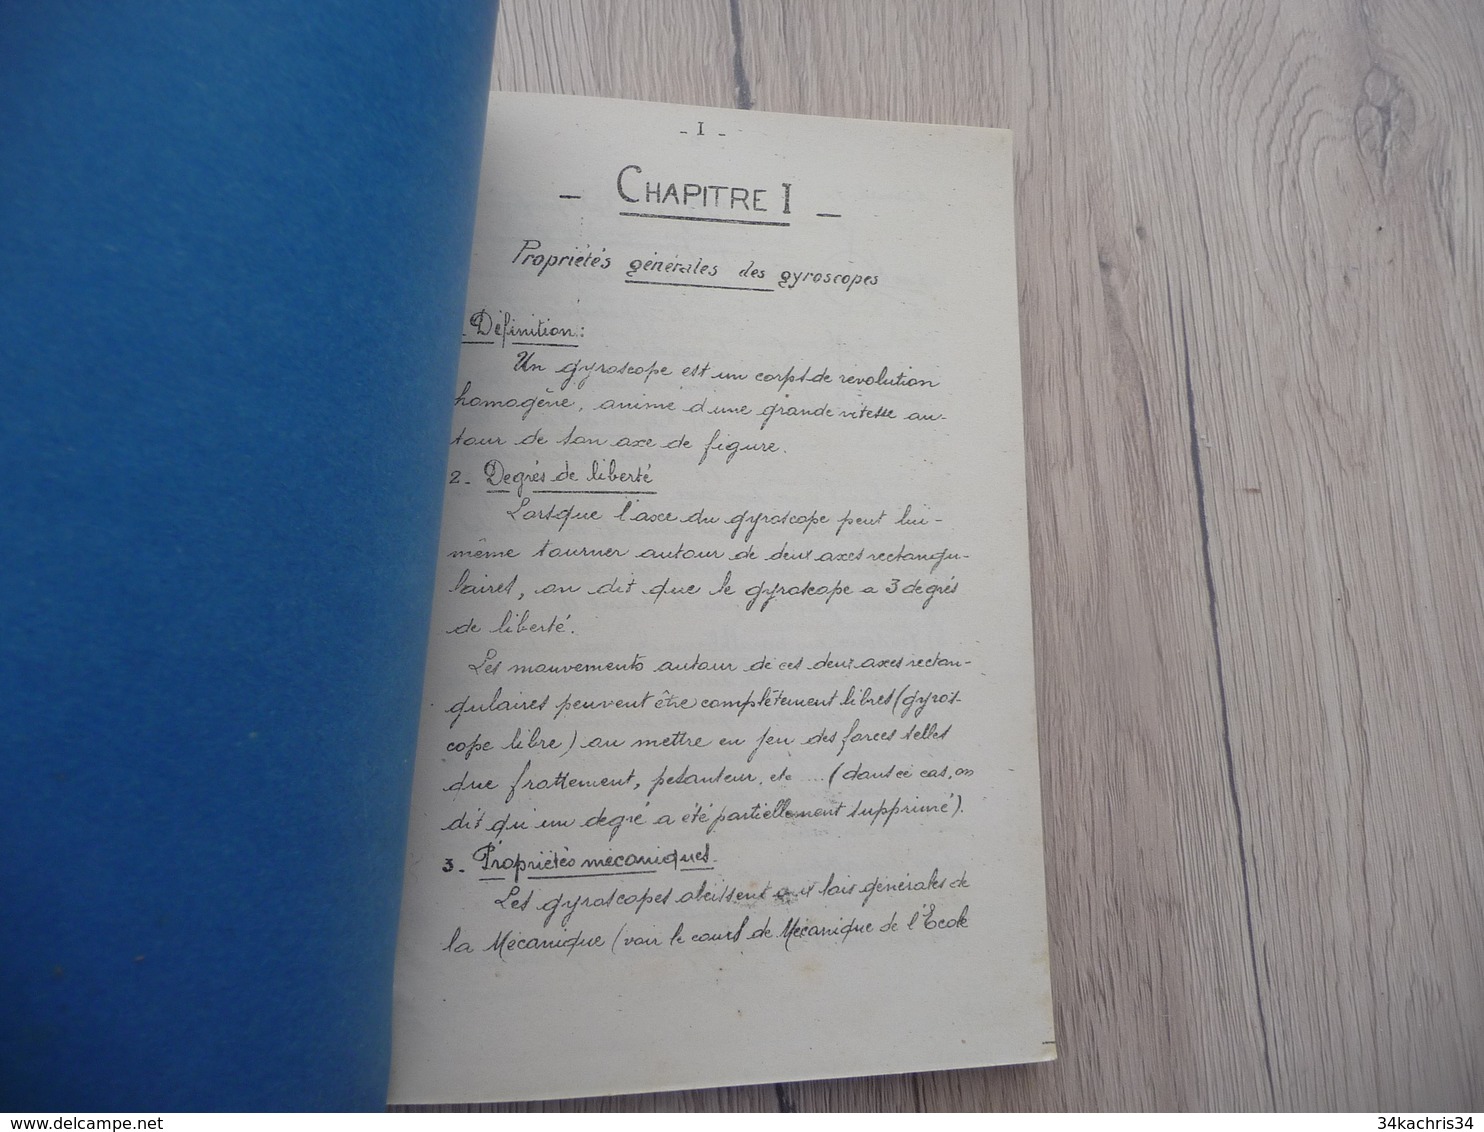 - I -
- CHAPITRE I -
Propriétés générales des gyroscopes
. Définition :
Un gyroscope est un corps de révolution
homogène, animé d'une grande vitesse au-
tour de son axe de figure.
2 - Degrés de liberté
Lorsque l'axe du gyroscope peut lui-
même tourner autour de deux axes rectangu-
laires, on dit que le gyroscope a 3 degrés
de liberté.
Les mouvements autour de ces deux axes rectan-
gulaires peuvent être complètement libres (gyros-
cope libre) ou mettre en jeu des forces telles
que frottement, pesanteur, etc .... (dans ce cas, on
dit qu'un degré a été partiellement supprimé).
3 - Propriétés mécaniques.
Les gyroscopes obéissent aux lois générales de
la Mécanique (voir le cours de Mécanique de l'École
delcampe.net
34kachris34